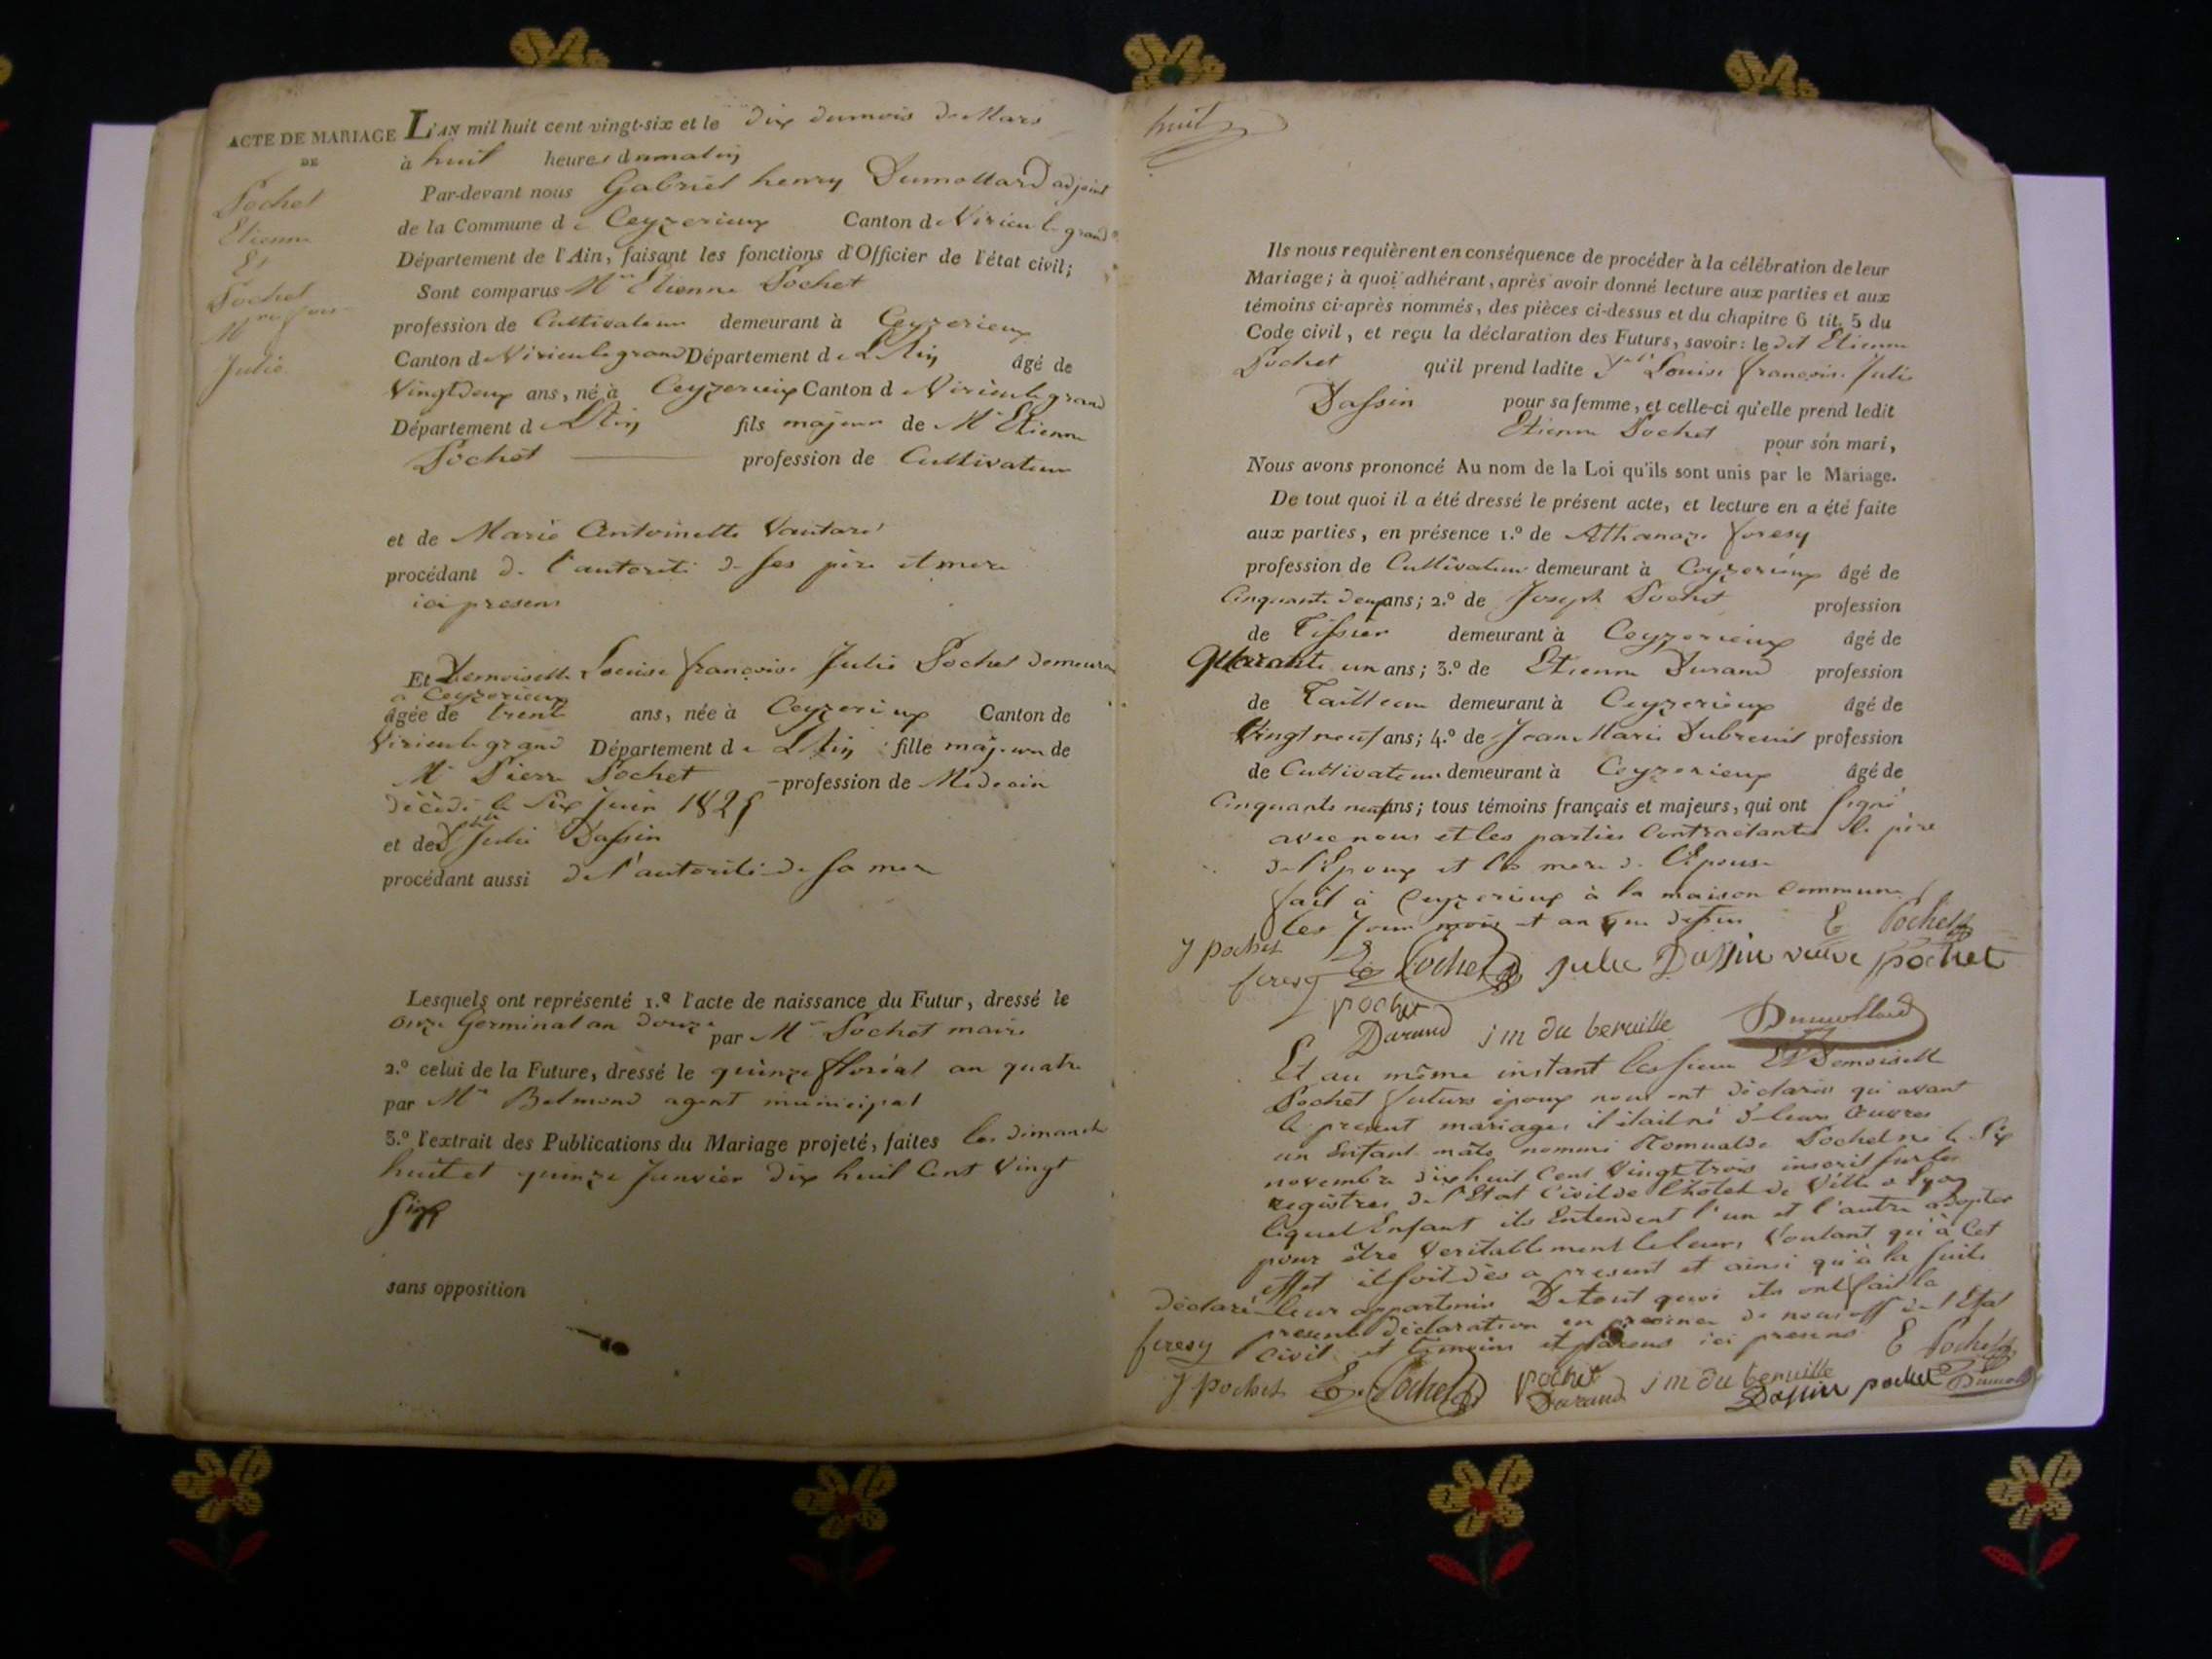 ACTE DE MARIAGE
DE
Pochet
Etienne
Et
Pochet
Julie
L'AN mil huit cent vingt-six et le dix du mois de Mars
à huit heures du matin
Par-devant nous Gabriel henry Dumollard adjoint
de la Commune de Ceyzerieux Canton de Virieu le grand
Département de l'Ain, faisant les fonctions d'Officier de l'état civil;
Sont comparus Mr Etienne Pochet
profession de Cultivateur demeurant à Ceyzerieux
Canton de Virieu le grand Département de L'Ain âgé de
Vingt deux ans, né à Ceyzerieux Canton d Virieu le grand
Département d L'Ain fils majeur de Mr Etienne
Pochet profession de Cultivateur
et de Marie Antoinette Vautaré
procédant de l'autorité de ses père et mère
ici presens
Et Demoiselle Louise françoise Julie Pochet demeurant
a Ceyzerieux
âgée de trente ans, née à Ceyzerieux Canton de
Virieu le grand Département de L'Ain fille majeure de
Mr Pierre Pochet profession de Medecin
décédé le Six Juin 1825
et de Julie Dassin
procédant aussi de l'autorité de sa mere
Lesquels ont représenté 1.º l'acte de naissance du Futur, dressé le
onze Germinal an douze par Mr Pochet maire
2.º celui de la Future, dressé le quinze floréal an quatre
par Mr Belmond agent municipal
3.º l'extrait des Publications du Mariage projeté, faites les dimanche
huit et quinze Janvier dix huit Cent Vingt
Six
sans opposition
huit
Ils nous requièrent en conséquence de procéder à la célébration de leur
Mariage; à quoi adhérant, après avoir donné lecture aux parties et aux
témoins ci-après nommés, des pièces ci-dessus et du chapitre 6 tit. 5 du
Code civil, et reçu la déclaration des Futurs, savoir: le dit Etienne
Pochet qu'il prend ladite Louise françoise Julie
Dassin pour sa femme, et celle-ci qu'elle prend ledit
Etienne Pochet pour son mari,
Nous avons prononcé Au nom de la Loi qu'ils sont unis par le Mariage.
De tout quoi il a été dressé le présent acte, et lecture en a été faite
aux parties, en présence 1.º de Athanaze feresy
profession de Cultivateur demeurant à Ceyzerieux âgé de
Cinquante deux ans; 2.º de Joseph Pochet profession
de Tissier demeurant à Ceyzerieux âgé de
Quarante un ans; 3.º de Etienne Durand profession
de Tailleur demeurant à Ceyzerieux âgé de
Vingt neuf ans; 4.º de Jean Marie Dubreuil profession
de Cultivateur demeurant à Ceyzerieux âgé de
Cinquante neuf ans; tous témoins français et majeurs, qui ont signé
avec nous et les parties Contractantes le père
de l'Epoux et la mere de l'Epouse
fait à Ceyzerieux à la maison Commune
les Jour mois et an que dessus E Pochet
J pochet
feresy E Pochet julie Dassin veuve pochet
pochet
Durand j m du beruille Dumollard
Et au même instant les sieur Et Demoiselle
Pochet futurs époux nous ont déclarés qu'avant
le present mariage, il était né de leurs Œuvres
un Enfant mâle nommé Romualde Pochet né le Six
novembre dix huit Cent Vingt trois inscrit sur les
registres de l'Etat Civil de l'hôtel de Ville a Lyon
lequel Enfant ils Entendent l'un et l'autre adopter
pour être Veritablement le leur, Voulant qu'à Cet
effet il soit dès a present et ainsi qu'à la suite
déclaré leur appartenir De tout quoi ils ont fait la
presente déclaration en presence de nous off de l'Etat
civil et temoins et parens ici presens
feresy E Pochet
J pochet E Pochet pochet j m du beruille
Durand Dassin pochet